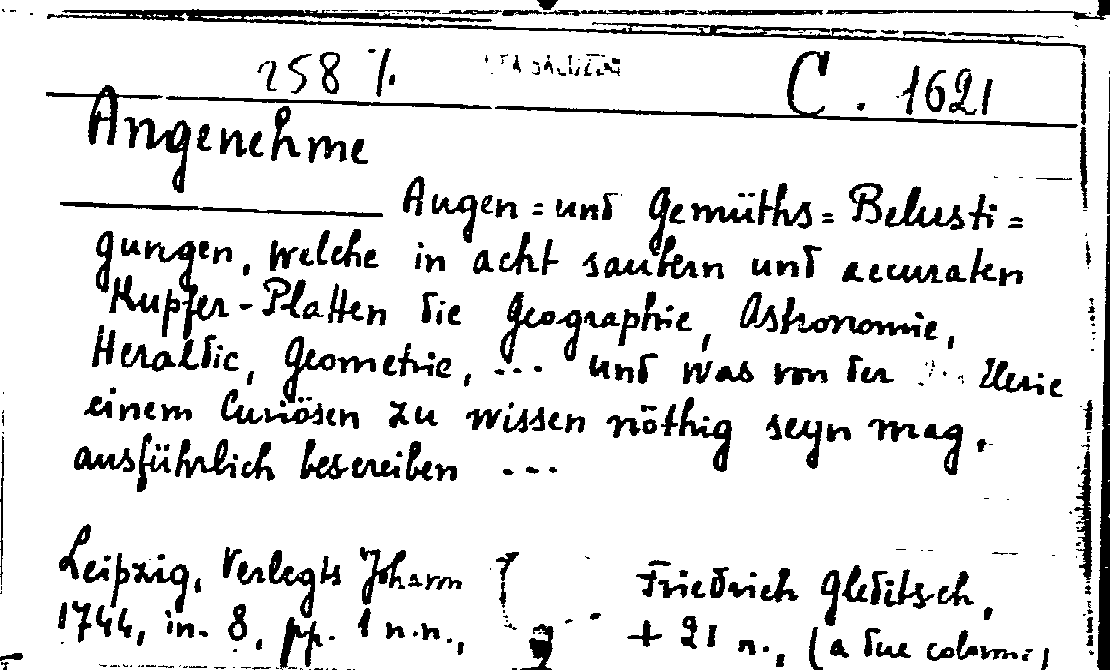 258 %. C. 1621
Angenehme
Augen=und Gemüths=Belusti=
gungen, welche in acht saubern und accuraten
Kupfer-Platten die Geographie, Astronomie,
Heraldic, Geometrie, ... und was von der
einem Curiösen zu wissen nöthig seyn mag,
ausführlich besereiben ...
Leipzig, Verlegts Johann Friedrich Gleditsch,
1744, in. 8, pp. 1 n.n., + 21 n., (a due colonne)